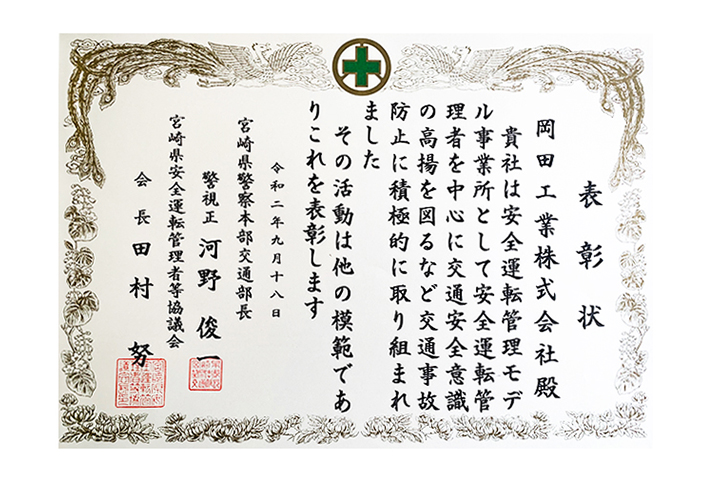 表彰状
岡田工業株式会社殿
貴社は安全運転管理モデ
ル事業所として安全運転管
理者を中心に交通安全意識
の高揚を図るなど交通事故
防止に積極的に取り組まれ
ました
その活動は他の模範であ
りこれを表彰します
令和二年九月十八日
宮崎県警察本部交通部長
警視正 河野俊一
宮崎県安全運転管理者等協議会
会長 田村努